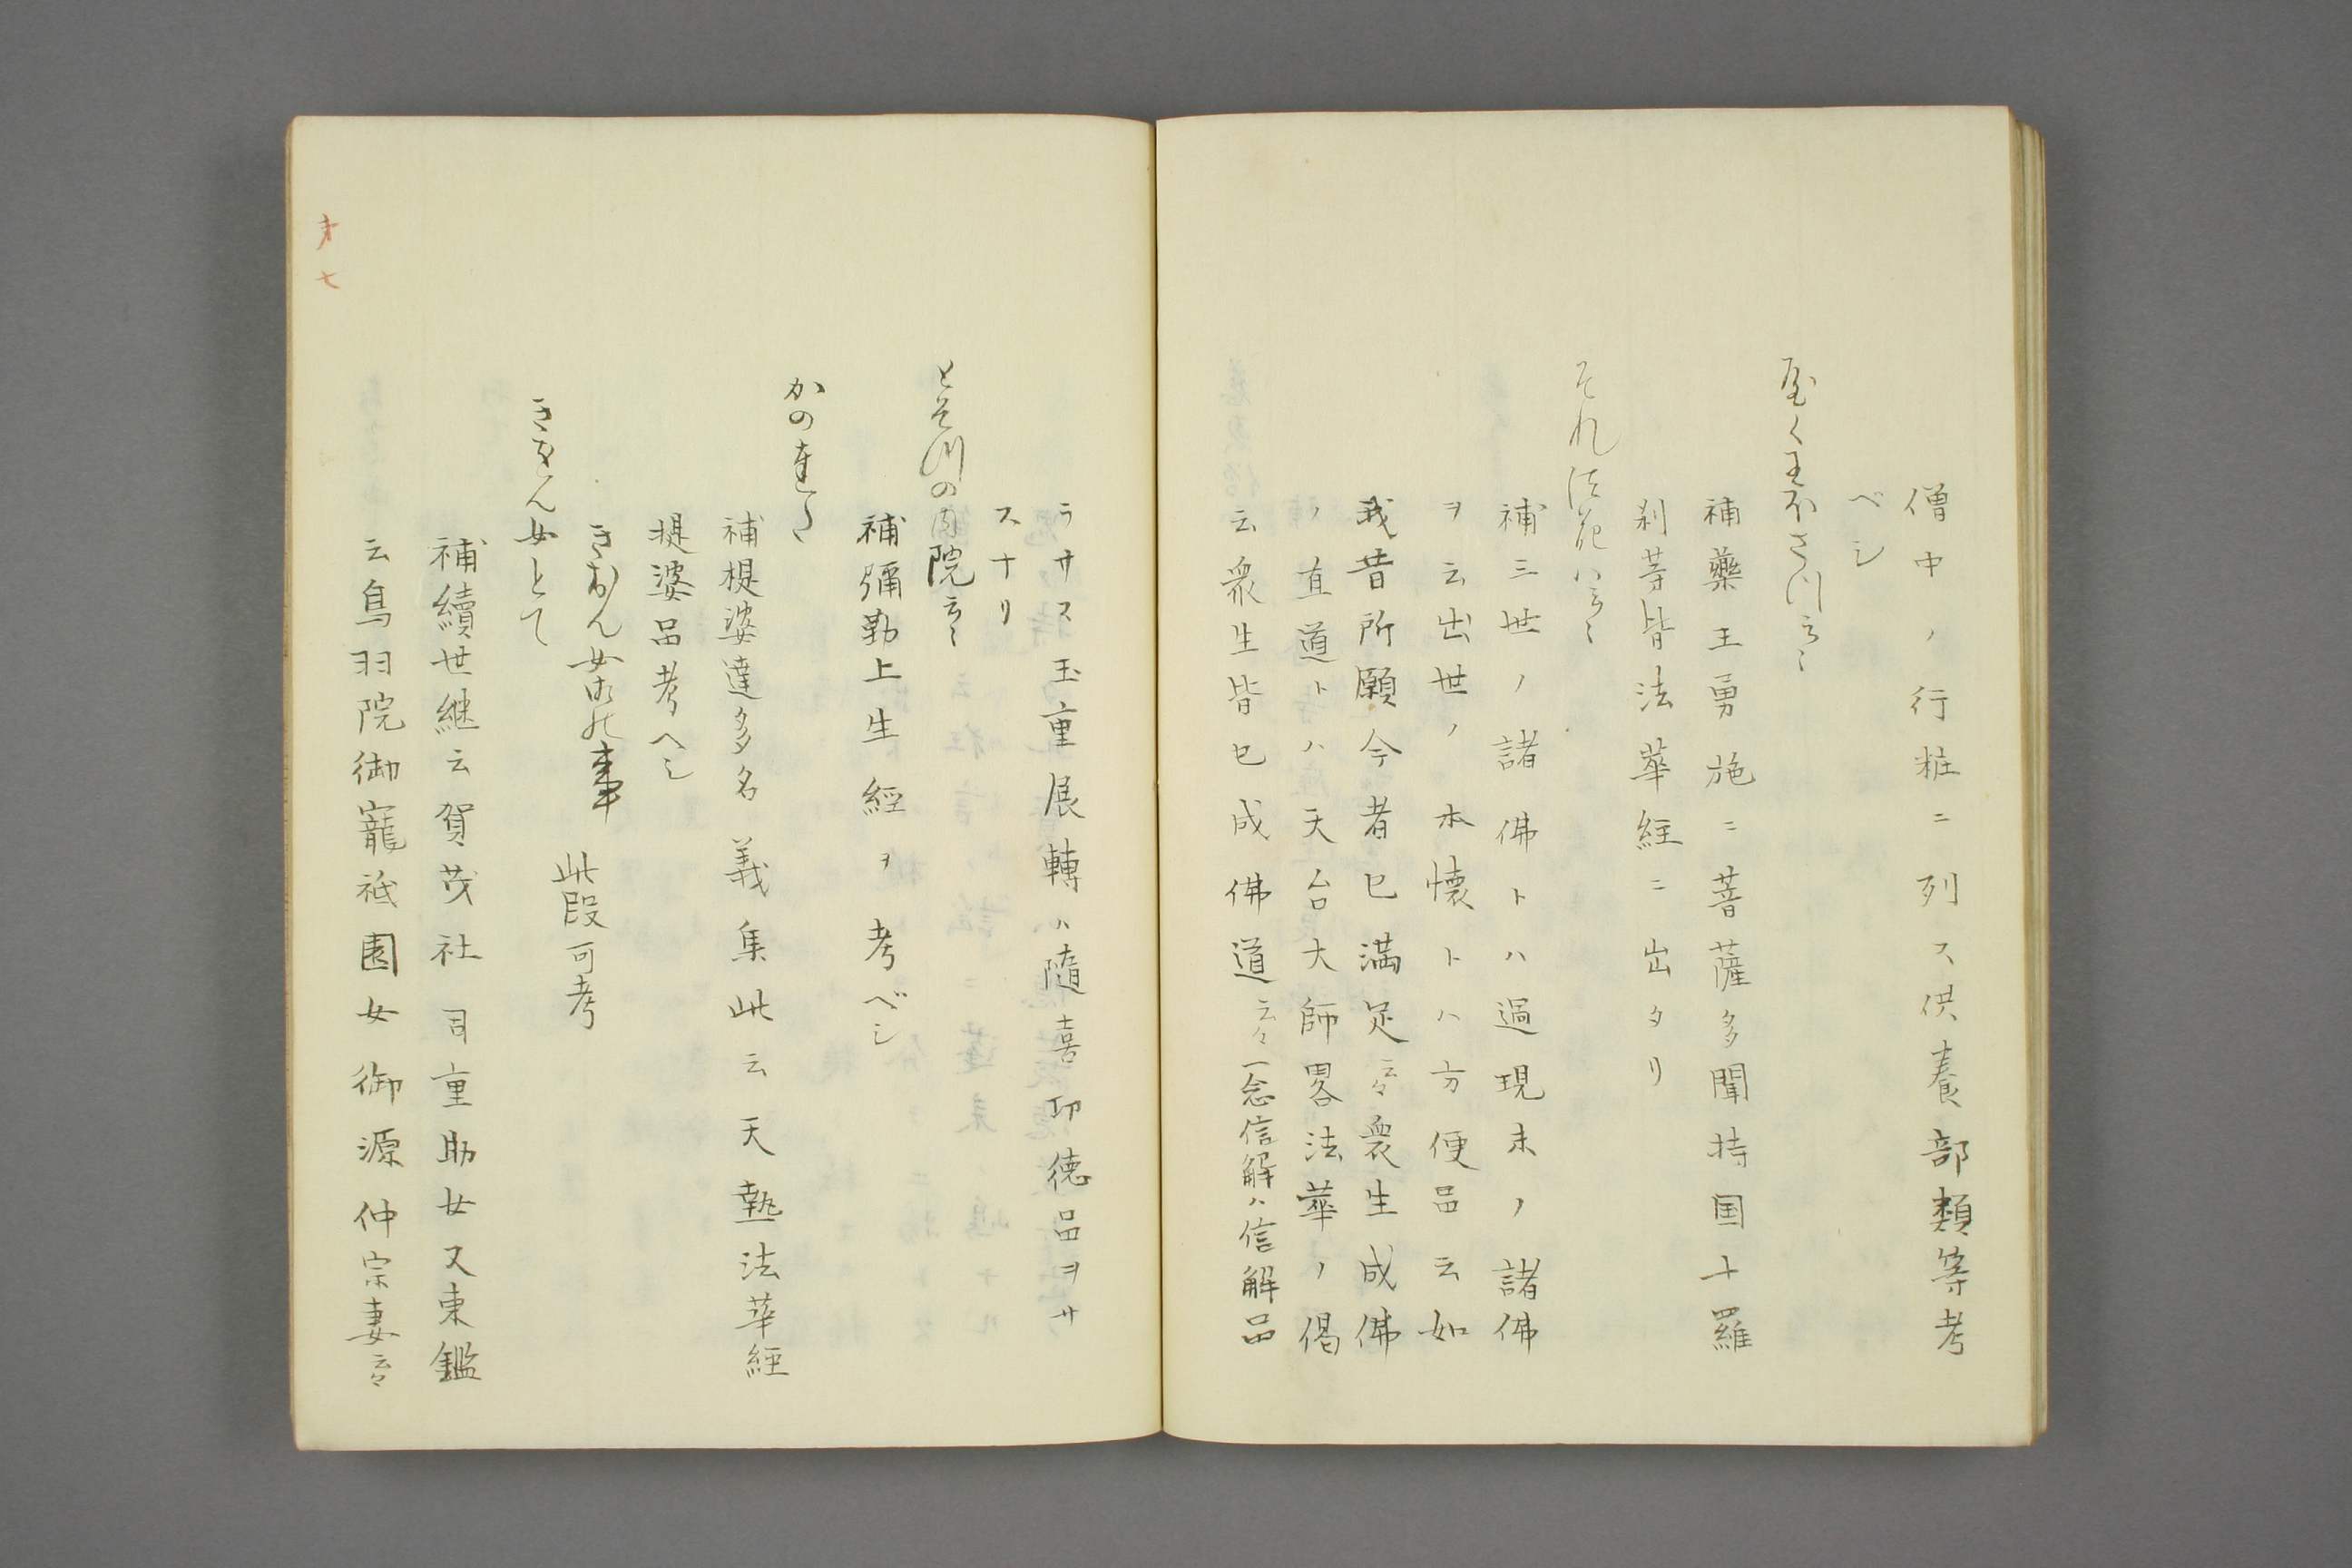 僧中ノ行粧ニ列ス供養部類等考
ベシ
やく王ぼさつ云々
補藥王勇施ニ菩薩多聞持国十羅
刹等皆法華経ニ出タリ
それ法花ハ云々
補三世ノ諸佛トハ過現未ノ諸佛
ヲ云出世ノ本懐トハ方便品云如
我昔所願今者已満足云々衆生成佛
ノ直道トハ天台大師畧法華ノ偈
云衆生皆已成佛道云々一念信解ハ信解品
ラサス五重展轉ハ隨喜功徳品ヲサ
スナリ
とそつの内院云々
補彌勒上生經ヲ考ベシ
かの達多
補提婆達多名義集此云天熱法華経
提婆品考ヘシ
きおん女御の事 此段可考
きをん女とて
補續世継云賀茂社司重助女又東鑑
云鳥羽院御寵祗園女御源仲宗妻云々
才七